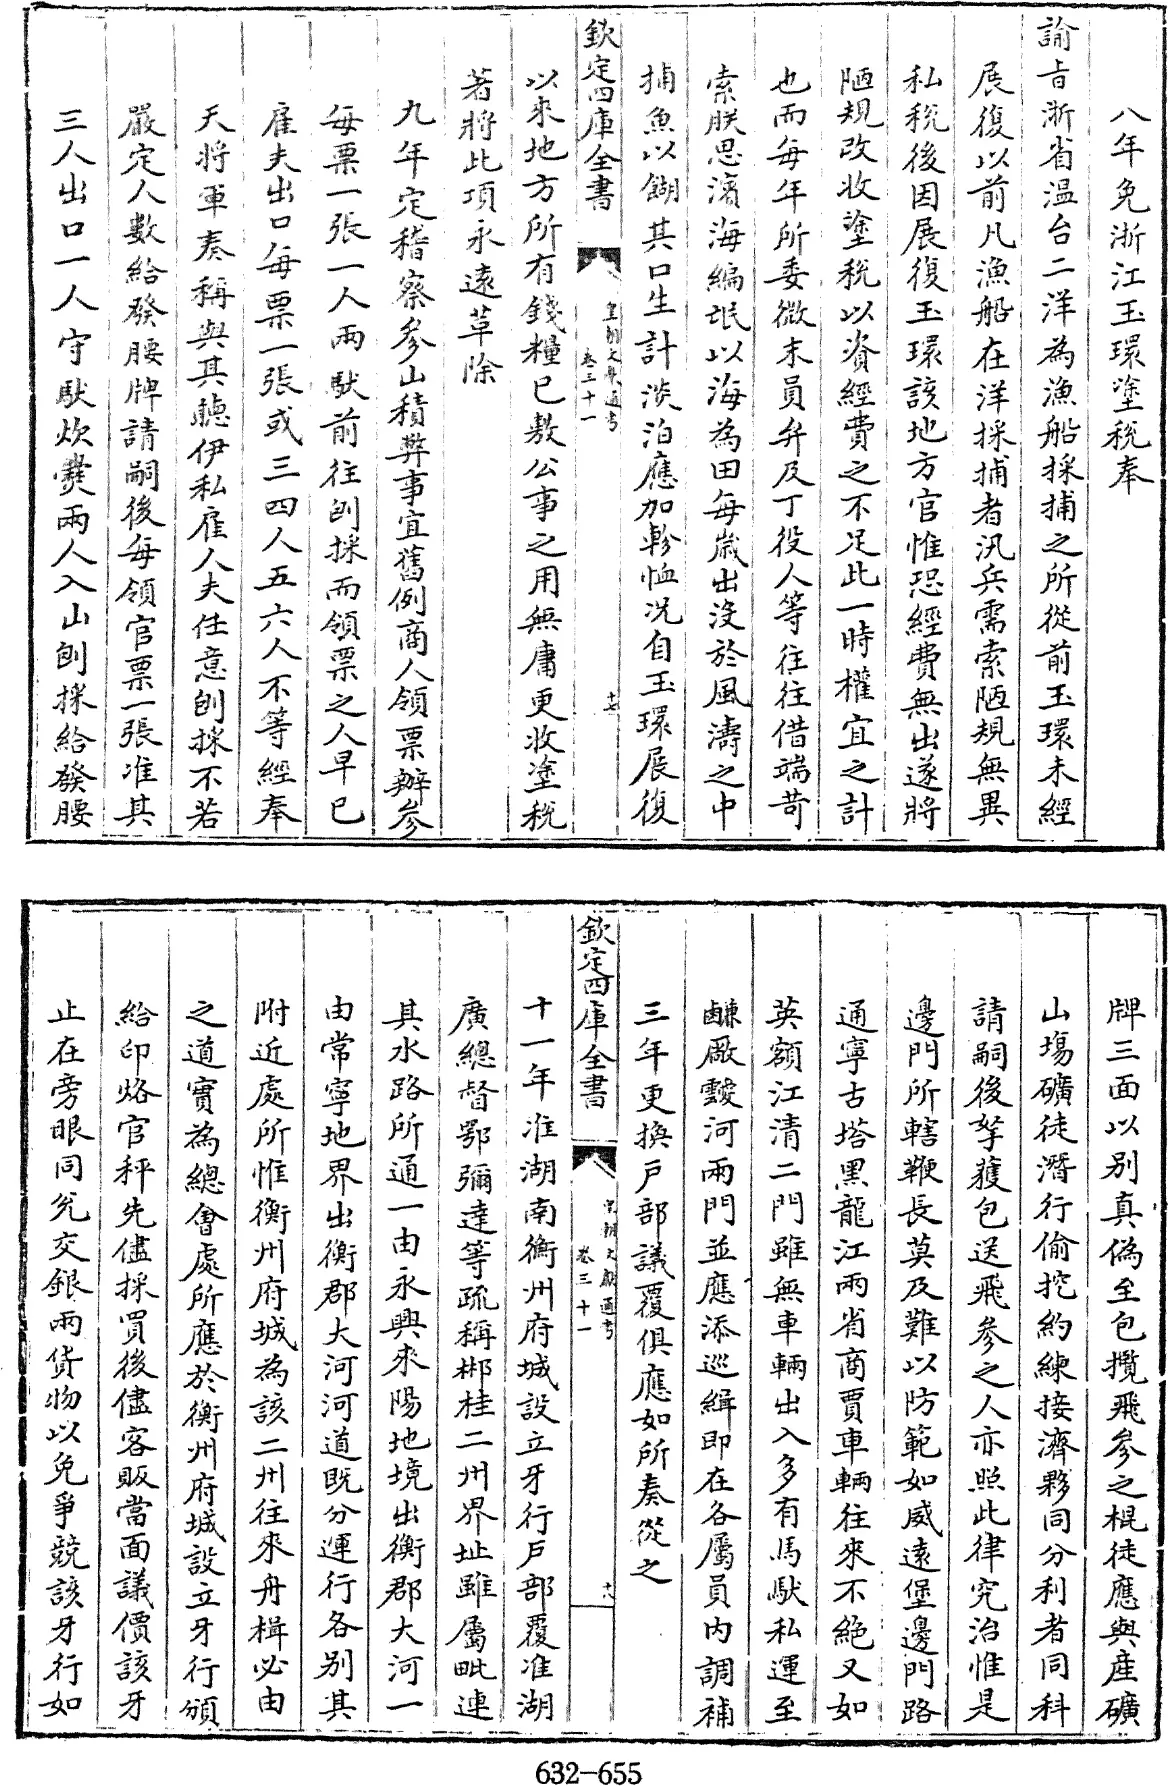 八年免浙江玉環塗稅奉
諭㫖浙省温台二洋為漁船採捕之所從前玉環未經
展復以前凡漁船在洋採捕者汛兵需索陋規無異
私稅後因展復玉環該地方官惟恐經費無出遂將
陋規改收塗稅以資經費之不足此一時權宜之計
也而每年所委微末員弁及丁役人等往往借端苛
索朕思濱海編氓以海為田每歲出沒於風濤之中
捕魚以餬其口生計淡泊應加軫恤况自玉環展復
欽定四庫全書
皇朝文獻通考
卷三十一
十七
以來地方所有錢糧已敷公事之用無庸更收塗稅
著將此項永遠革除
九年定稽察參山積弊事宜舊例商人領票辦參
每票一張一人兩馱前往刨採而領票之人早已
雇夫出口每票一張或三四人五六人不等經奉
天將軍奏稱與其聽伊私雇人夫任意刨採不若
嚴定人數給發腰牌請嗣後每領官票一張准其
三人出口一人守馱炊爨兩人入山刨採給發腰
牌三面以别真偽至包攬飛參之棍徒應與產礦
山塲礦徒潛行偷挖約練接濟夥同分利者同科
請嗣後拏獲包送飛參之人亦照此律究治惟是
邊門所轄鞭長莫及難以防範如威遠堡邊門路
通寧古塔黑龍江兩省商賈車輛往來不絕又如
英額江清二門雖無車輛出入多有馬馱私運至
鹻厰靉河兩門並應添巡緝即在各屬員内調補
三年更換戸部議覆俱應如所奏從之
欽定四庫全書
皇朝文獻通考
卷三十一
十八
十一年准湖南衡州府城設立牙行戸部覆准湖
廣總督鄂彌達等疏稱郴桂二州界址雖屬毗連
其水路所通一由永興耒陽地境出衡郡大河一
由常寧地界出衡郡大河河道既分運行各别其
附近處所惟衡州府城為該二州往來舟楫必由
之道實為總會處所應於衡州府城設立牙行頒
給印烙官秤先儘採買後儘客販當面議價該牙
止在旁眼同兊交銀兩貨物以免爭競該牙行如
632-655